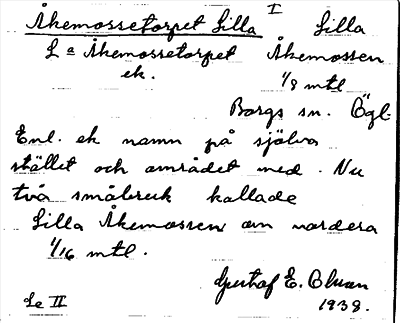 Åkemossetorpet Lilla I Lilla
La Åkemossetorpet Åkemossen
ek. 1/8 mtl
Borgs sn. Ögl.
Enl. ek namn på själva
stället och området med. Nu
två småbruk kallade
Lilla Åkemossen om vardera
1/16 mtl.
Gustaf E. Bluan
Le II 1938.